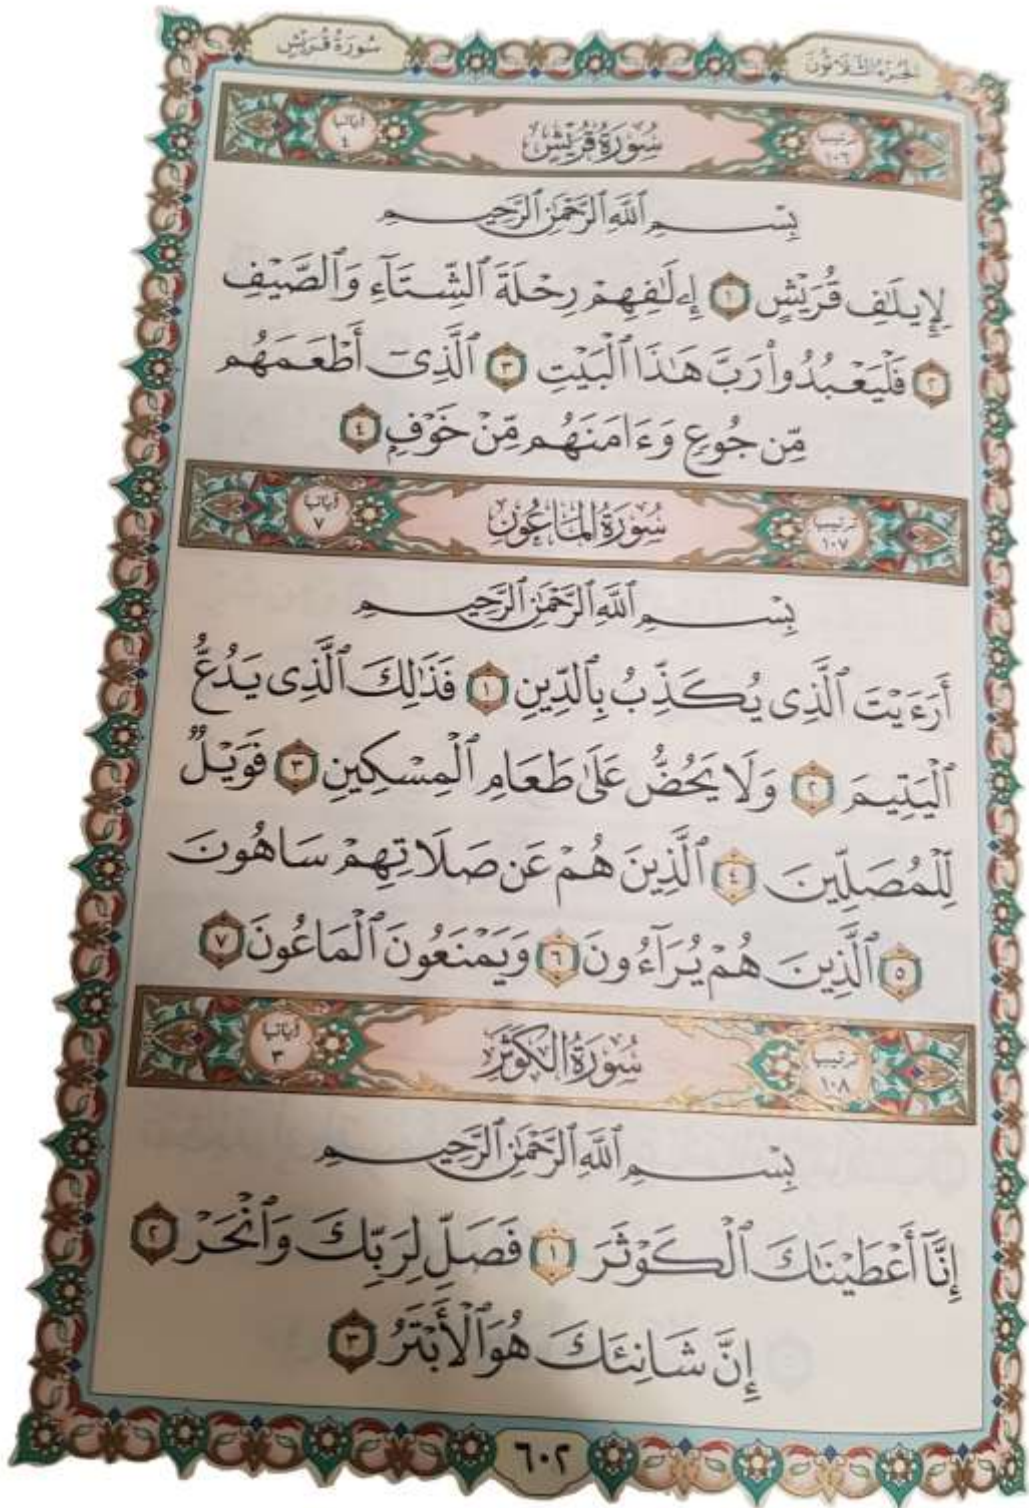 الجزء الثلاثون
سورة قريش
ترتيبها ١٠٦
سُورَةُ قُرَيْشٍ
آياتها ٤
بِسْمِ ٱللَّهِ ٱلرَّحْمَٰنِ ٱلرَّحِيمِ
لِإِيلَٰفِ قُرَيْشٍ ١ إِۦلَٰفِهِمْ رِحْلَةَ ٱلشِّتَآءِ وَٱلصَّيْفِ
٢ فَلْيَعْبُدُوا۟ رَبَّ هَٰذَا ٱلْبَيْتِ ٣ ٱلَّذِىٓ أَطْعَمَهُم
مِّن جُوعٍ وَءَامَنَهُم مِّنْ خَوْفٍۭ ٤
ترتيبها ١٠٧
سُورَةُ المَاعُونِ
آياتها ٧
بِسْمِ ٱللَّهِ ٱلرَّحْمَٰنِ ٱلرَّحِيمِ
أَرَءَيْتَ ٱلَّذِى يُكَذِّبُ بِٱلدِّينِ ١ فَذَٰلِكَ ٱلَّذِى يَدُعُّ
ٱلْيَتِيمَ ٢ وَلَا يَحُضُّ عَلَىٰ طَعَامِ ٱلْمِسْكِينِ ٣ فَوَيْلٌ
لِّلْمُصَلِّينَ ٤ ٱلَّذِينَ هُمْ عَن صَلَاتِهِمْ سَاهُونَ
٥ ٱلَّذِينَ هُمْ يُرَآءُونَ ٦ وَيَمْنَعُونَ ٱلْمَاعُونَ ٧
ترتيبها ١٠٨
سُورَةُ الكَوْثَرِ
آياتها ٣
بِسْمِ ٱللَّهِ ٱلرَّحْمَٰنِ ٱلرَّحِيمِ
إِنَّآ أَعْطَيْنَٰكَ ٱلْكَوْثَرَ ١ فَصَلِّ لِرَبِّكَ وَٱنْحَرْ ٢
إِنَّ شَانِئَكَ هُوَ ٱلْأَبْتَرُ ٣
٦٠٢